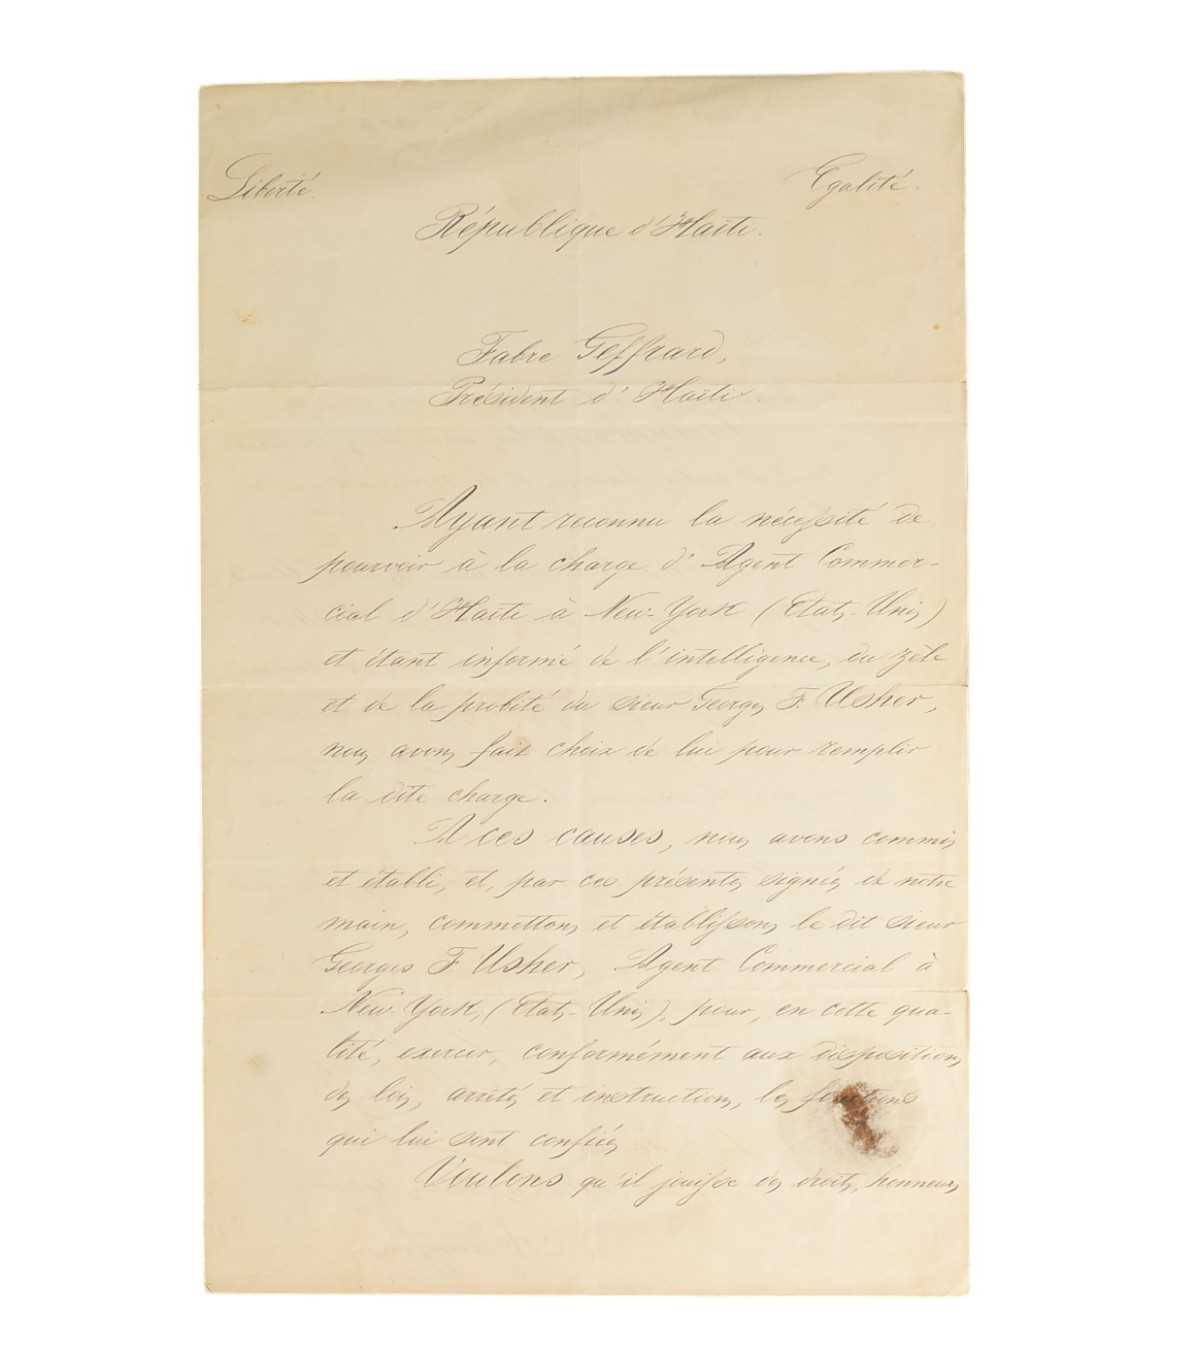 Liberté. Egalité.
République d'Haïti.
Fabre Geffrard,
Président d'Haïti.
Ayant reconnu la nécessité de
pourvoir à la charge d'Agent Commer-
cial d'Haïti à New-York (Etats-Unis)
et étant informé de l'intelligence, du zèle
et de la probité du sieur Georges F. Usher,
nous avons fait choix de lui pour remplir
la dite charge.
A ces causes, nous avons commis
et établi, et, par ces présentes signées de notre
main, commettons et établissons le dit sieur
Georges F. Usher, Agent Commercial à
New-York, (Etats-Unis), pour, en cette qua-
lité, exercer, conformément aux dispositions
des lois, arrêtés et instructions, les fonctions
qui lui sont confiées
Voulons qu'il jouisse des droits, honneurs